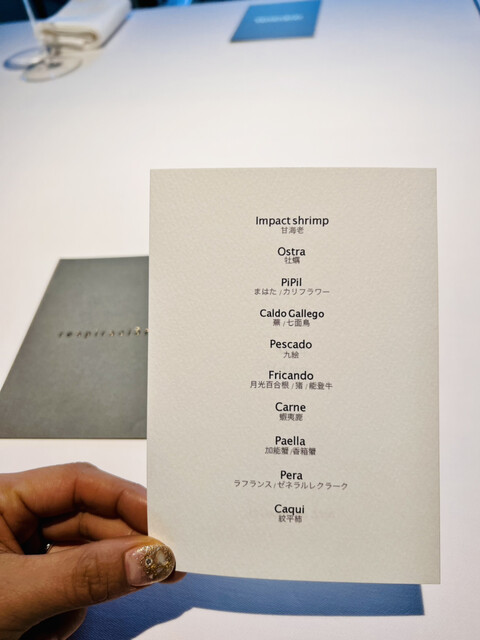 Impact shrimp
甘海老
Ostra
牡蠣
PiPil
まはた / カリフラワー
Caldo Gallego
蕪 / 七面鳥
Pescado
九絵
Fricando
月光百合根 / 猪 / 能登牛
Carne
蝦夷鹿
Paella
加能蟹 / 香箱蟹
Pera
ラフランス / ゼネラルレクラーク
Caqui
紋平柿
respiración